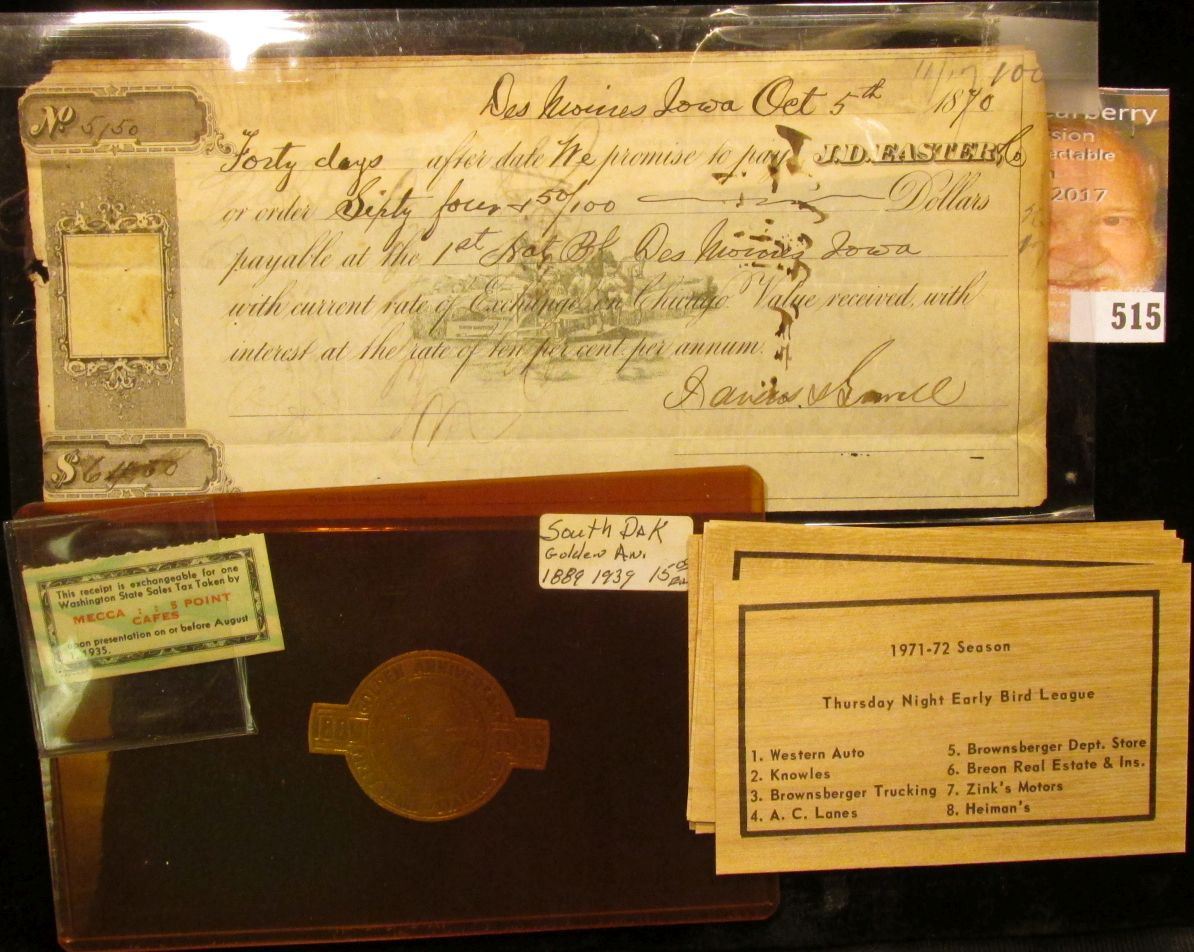 Des Moines Iowa Oct 5th 1870
No 5150
Forty days after date We promise to pay J.D. EASTER & Co
or order Sixty four & 50/100 Dollars
payable at the 1st Nat Bk Des Moines Iowa
with current rate of Exchange on Chicago. Value received, with
interest at the rate of ten per cent. per annum.
$64.50
100
berry
sion
actable
2017
515
South Dak
Golden An.
1889 1939 15.00
This receipt is exchangeable for one
Washington State Sales Tax Token by
MECCA : : 5 POINT
CAFES
upon presentation on or before August
1, 1935.
GOLDEN ANNIVERSARY
1889
1939
1971-72 Season
Thursday Night Early Bird League
1. Western Auto
2. Knowles
3. Brownsberger Trucking
4. A. C. Lanes
5. Brownsberger Dept. Store
6. Breon Real Estate & Ins.
7. Zink's Motors
8. Heiman's